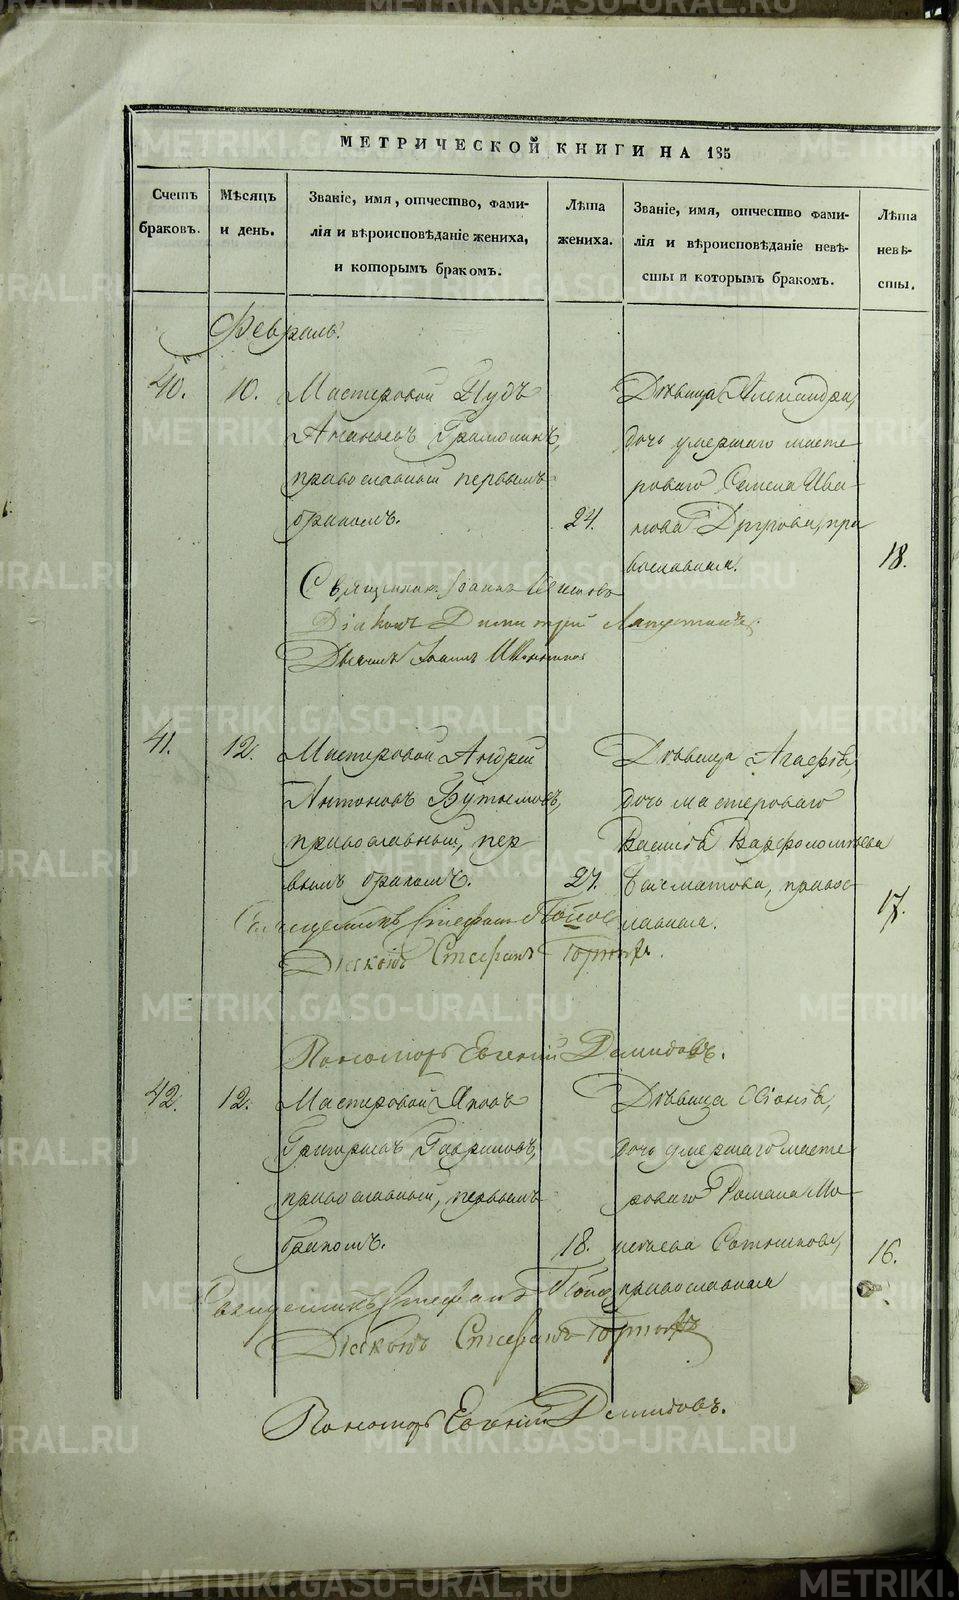 МЕТРИЧЕСКОЙ КНИГИ НА 185
Счетъ
браковъ.
Мѣсяцъ
и день.
Званіе, имя, отчество, фами-
лія и вѣроисповѣданіе жениха,
и которымъ бракомъ.
Лѣта
жениха.
Званіе, имя, отчество фами-
лія и вѣроисповѣданіе невѣ-
сты и которымъ бракомъ.
Лѣта
невѣ-
сты.
Февраль.
40.
10.
Мастеровой Іудъ
православный первымъ
бракомъ.
24.
Дѣвица Александра,
дочь умершаго масте
роваго Семена Ива
нова пра
вославная.
18.
Священникъ Іоаннъ
Діаконъ Димитрій
Дьячекъ Іоаннъ
41.
12.
Мастеровой Андрей
Антоновъ
православный, пер
вымъ бракомъ.
27.
Дѣвица Агафія,
дочь мастероваго
Василія Варфоломѣева
православ
лавная.
17.
Священникъ Стефанъ Попов
Діаконъ Стефанъ
Пономарь Евгеній Демидовъ.
42.
12.
Мастеровой Яковъ
Григорьевъ Гавриловъ,
православный, первымъ
бракомъ.
18.
Дѣвица
дочь умершаго масте
роваго Романа Мо
исеева
православная
16.
Священникъ Стефанъ Попов
Діаконъ Стефанъ
Пономарь Евгеній Демидовъ.
METRIKI.GASO-URAL.RU